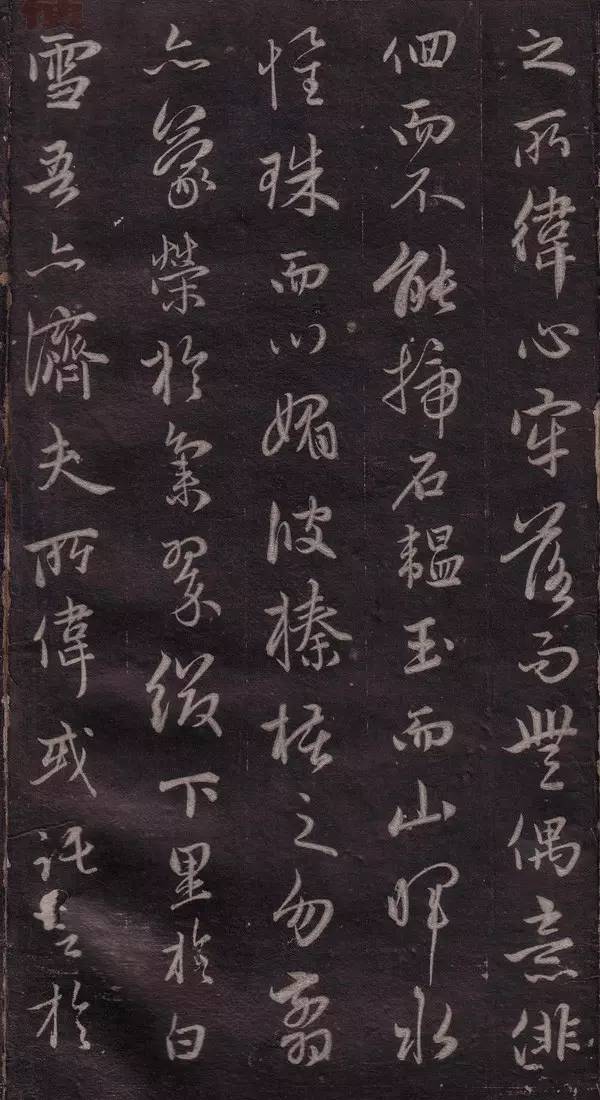 之所緯心牢落而無偶意俳
佪而不能揥石韞玉而山暉水
懷珠而川媚彼榛楛之勿翦
亦蒙榮於集翠綴下里於白
雪吾亦濟夫所偉或託言於